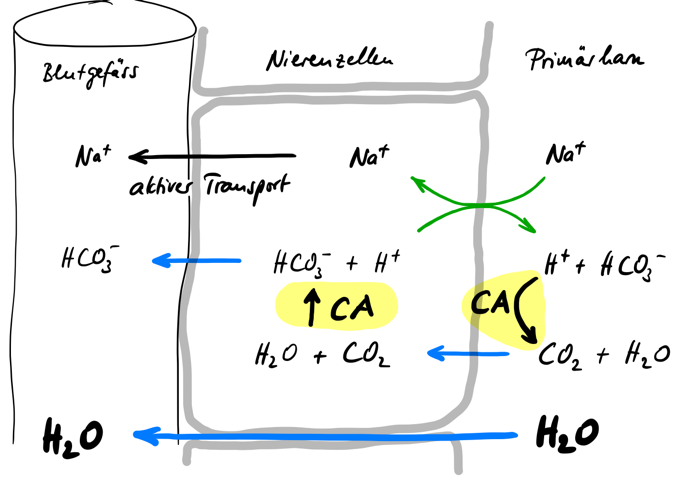 Blutgefäss Nierenzellen Primärharn
Na⁺ Na⁺ Na⁺
aktiver Transport
HCO₃⁻ HCO₃⁻ + H⁺ H⁺ + HCO₃⁻
CA CA
H₂O + CO₂ CO₂ + H₂O
H₂O H₂O